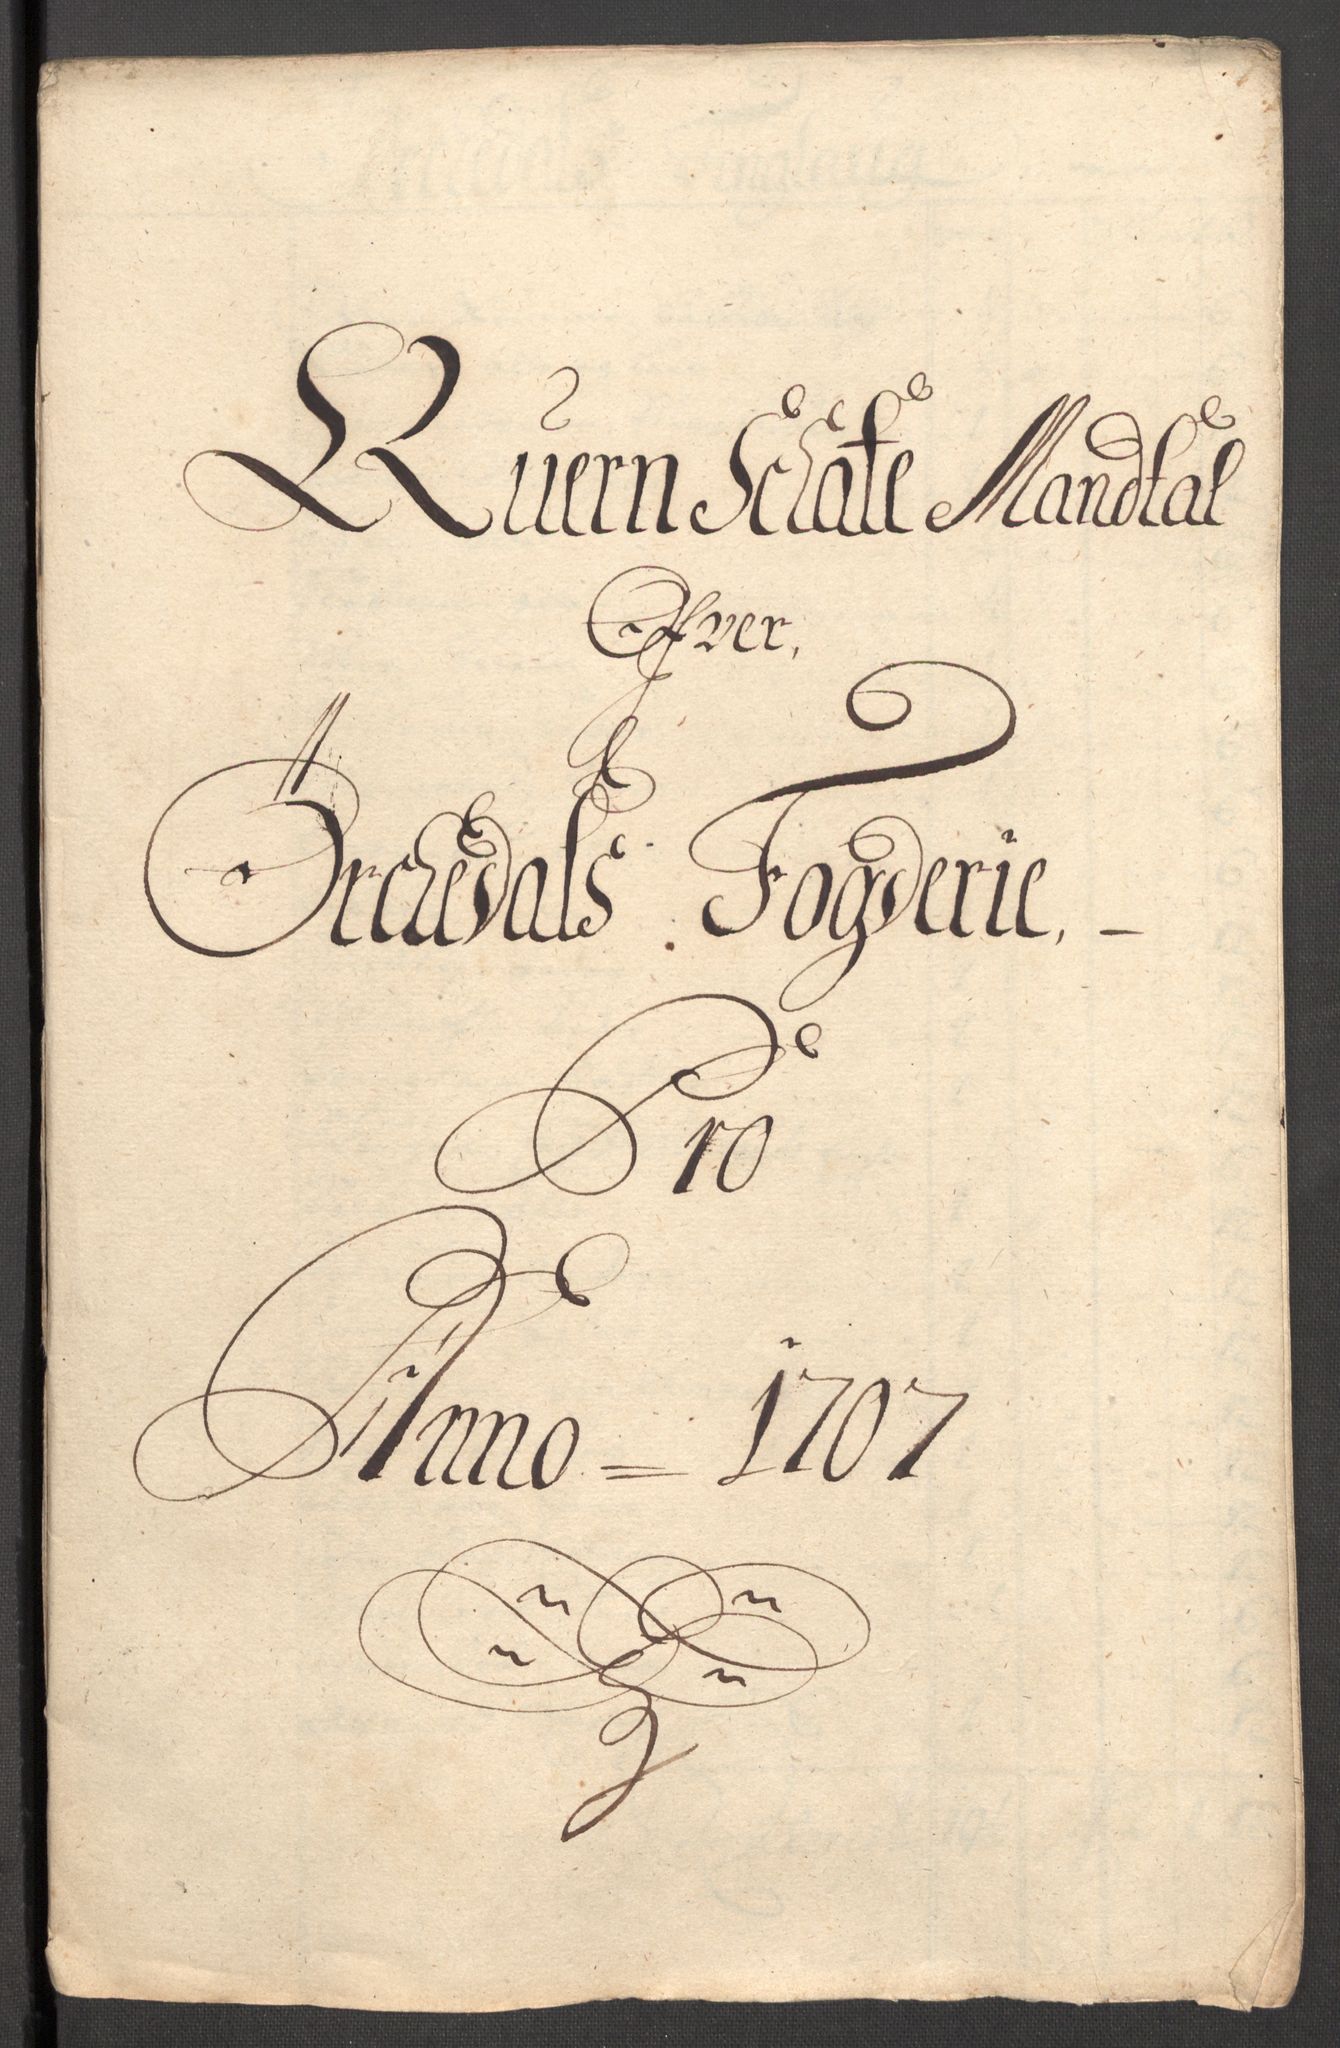 Quern Schate Mandtal
Ofver,
Örchedals Fogderie, –
Pro
Anno = 1707